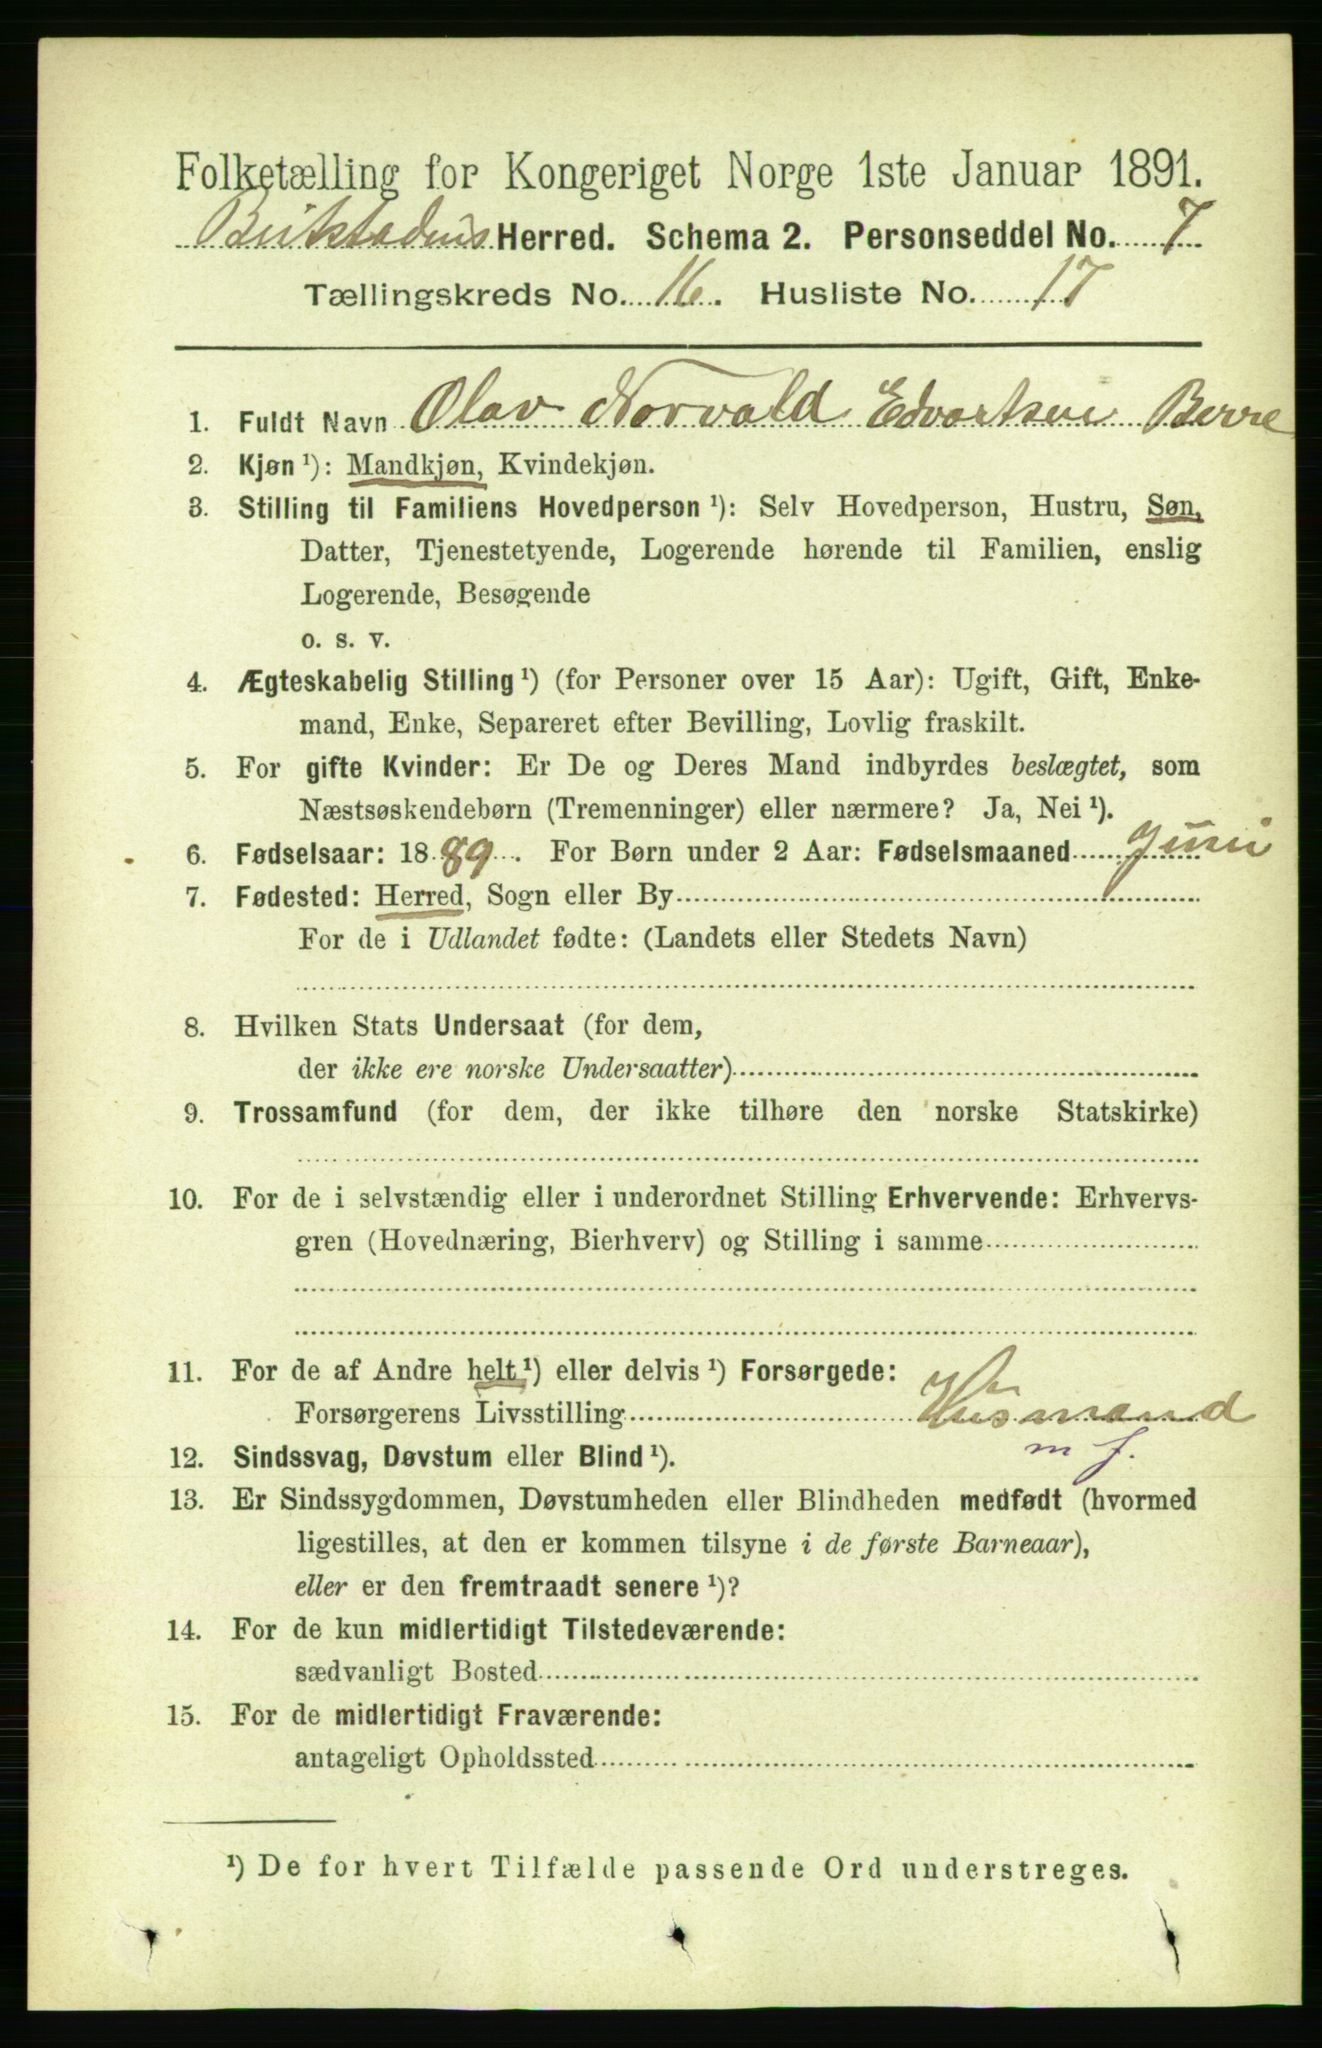 Folketælling for Kongeriget Norge 1ste Januar 1891.
Beitstadens Herred. Schema 2. Personseddel No. 7
Tællingskreds No. 16. Husliste No. 17
1. Fuldt Navn Olav Norvald Edvartsen Berre
2. Kjøn ¹): Mandkjøn, Kvindekjøn.
3. Stilling til Familiens Hovedperson ¹): Selv Hovedperson, Hustru, Søn,
Datter, Tjenestetyende, Logerende hørende til Familien, enslig
Logerende, Besøgende
o. s. v.
4. Ægteskabelig Stilling ¹) (for Personer over 15 Aar): Ugift, Gift, Enke-
mand, Enke, Separeret efter Bevilling, Lovlig fraskilt.
5. For gifte Kvinder: Er De og Deres Mand indbyrdes beslægtet, som
Næstsøskendebørn (Tremenninger) eller nærmere? Ja, Nei ¹).
6. Fødselsaar: 1889. For Børn under 2 Aar: Fødselsmaaned Juni
7. Fødested: Herred, Sogn eller By
For de i Udlandet fødte: (Landets eller Stedets Navn)
8. Hvilken Stats Undersaat (for dem,
der ikke ere norske Undersaatter)
9. Trossamfund (for dem, der ikke tilhøre den norske Statskirke)
10. For de i selvstændig eller i underordnet Stilling Erhvervende: Erhvervs-
gren (Hovednæring, Bierhverv) og Stilling i samme
11. For de af Andre helt ¹) eller delvis ¹) Forsørgede:
Forsørgerens Livsstilling Husmand
m f.
12. Sindssvag, Døvstum eller Blind ¹).
13. Er Sindssygdommen, Døvstumheden eller Blindheden medfødt (hvormed
ligestilles, at den er kommen tilsyne i de første Barneaar),
eller er den fremtraadt senere ¹)?
14. For de kun midlertidigt Tilstedeværende:
sædvanligt Bosted
15. For de midlertidigt Fraværende:
antageligt Opholdssted
¹) De for hvert Tilfælde passende Ord understreges.